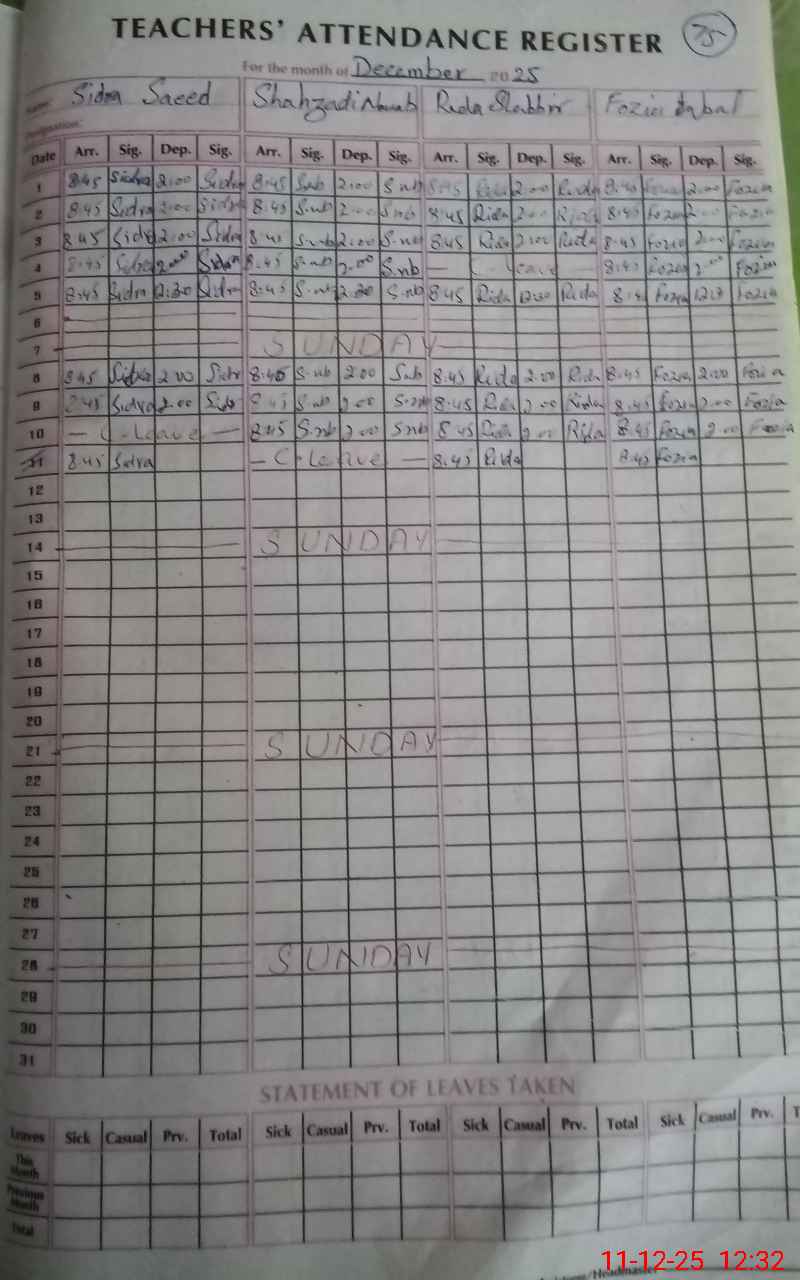 TEACHERS' ATTENDANCE REGISTER 75
For the month of December 2025
Name: Sidra Saeed Shahzadi Nawab Rida Shabbir Fozia Iqbal
Designation:
Date Arr. Sig. Dep. Sig. Arr. Sig. Dep. Sig. Arr. Sig. Dep. Sig. Arr. Sig. Dep. Sig.
1 8:45 Sidra 2:00 Sidra 8:45 Snb 2:00 Snb 8:45 Rida 2:00 Rida 8:45 Fozia 2:00 Fozia
2 8:45 Sidra 2:00 Sidra 8:45 S.nb 2:00 Snb 8:45 Rida 2:00 Rida 8:45 Fozia 2:00 Fozia
3 8:45 Sidra 2:00 Sidra 8:45 S.nb 2:00 S.nb 8:45 Rida 2:00 Rida 8:45 Fozia 2:00 Fozia
4 8:45 Sidra 2:00 Sidra 8:45 S.nb 2:00 S.nb — C-leave — 8:45 Fozia 2:00 Fozia
5 8:45 Sidra 12:30 Sidra 8:45 S.nb 12:30 S.nb 8:45 Rida 12:30 Rida 8:45 Fozia 12:30 Fozia
6
7 SUNDAY
8 8:45 Sidra 2:00 Sidra 8:45 S.nb 2:00 Snb 8:45 Rida 2:00 Rida 8:45 Fozia 2:00 Fozia
9 8:45 Sidra 2:00 Sidra 8:45 S.nb 2:00 S.nb 8:45 Rida 2:00 Rida 8:45 Fozia 2:00 Fozia
10 — C-Leave — 8:45 S.nb 2:00 Snb 8:45 Rida 2:00 Rida 8:45 Fozia 2:00 Fozia
11 8:45 Sidra — C-Leave — 8:45 Rida 8:45 Fozia
12
13
14 SUNDAY
15
16
17
18
19
20
21 SUNDAY
22
23
24
25
26
27
28 SUNDAY
29
30
31
STATEMENT OF LEAVES TAKEN
Leaves Sick Casual Prv. Total Sick Casual Prv. Total Sick Casual Prv. Total Sick Casual Prv. T
This Month
Previous Month
Total
/Headmaster
11-12-25 12:32